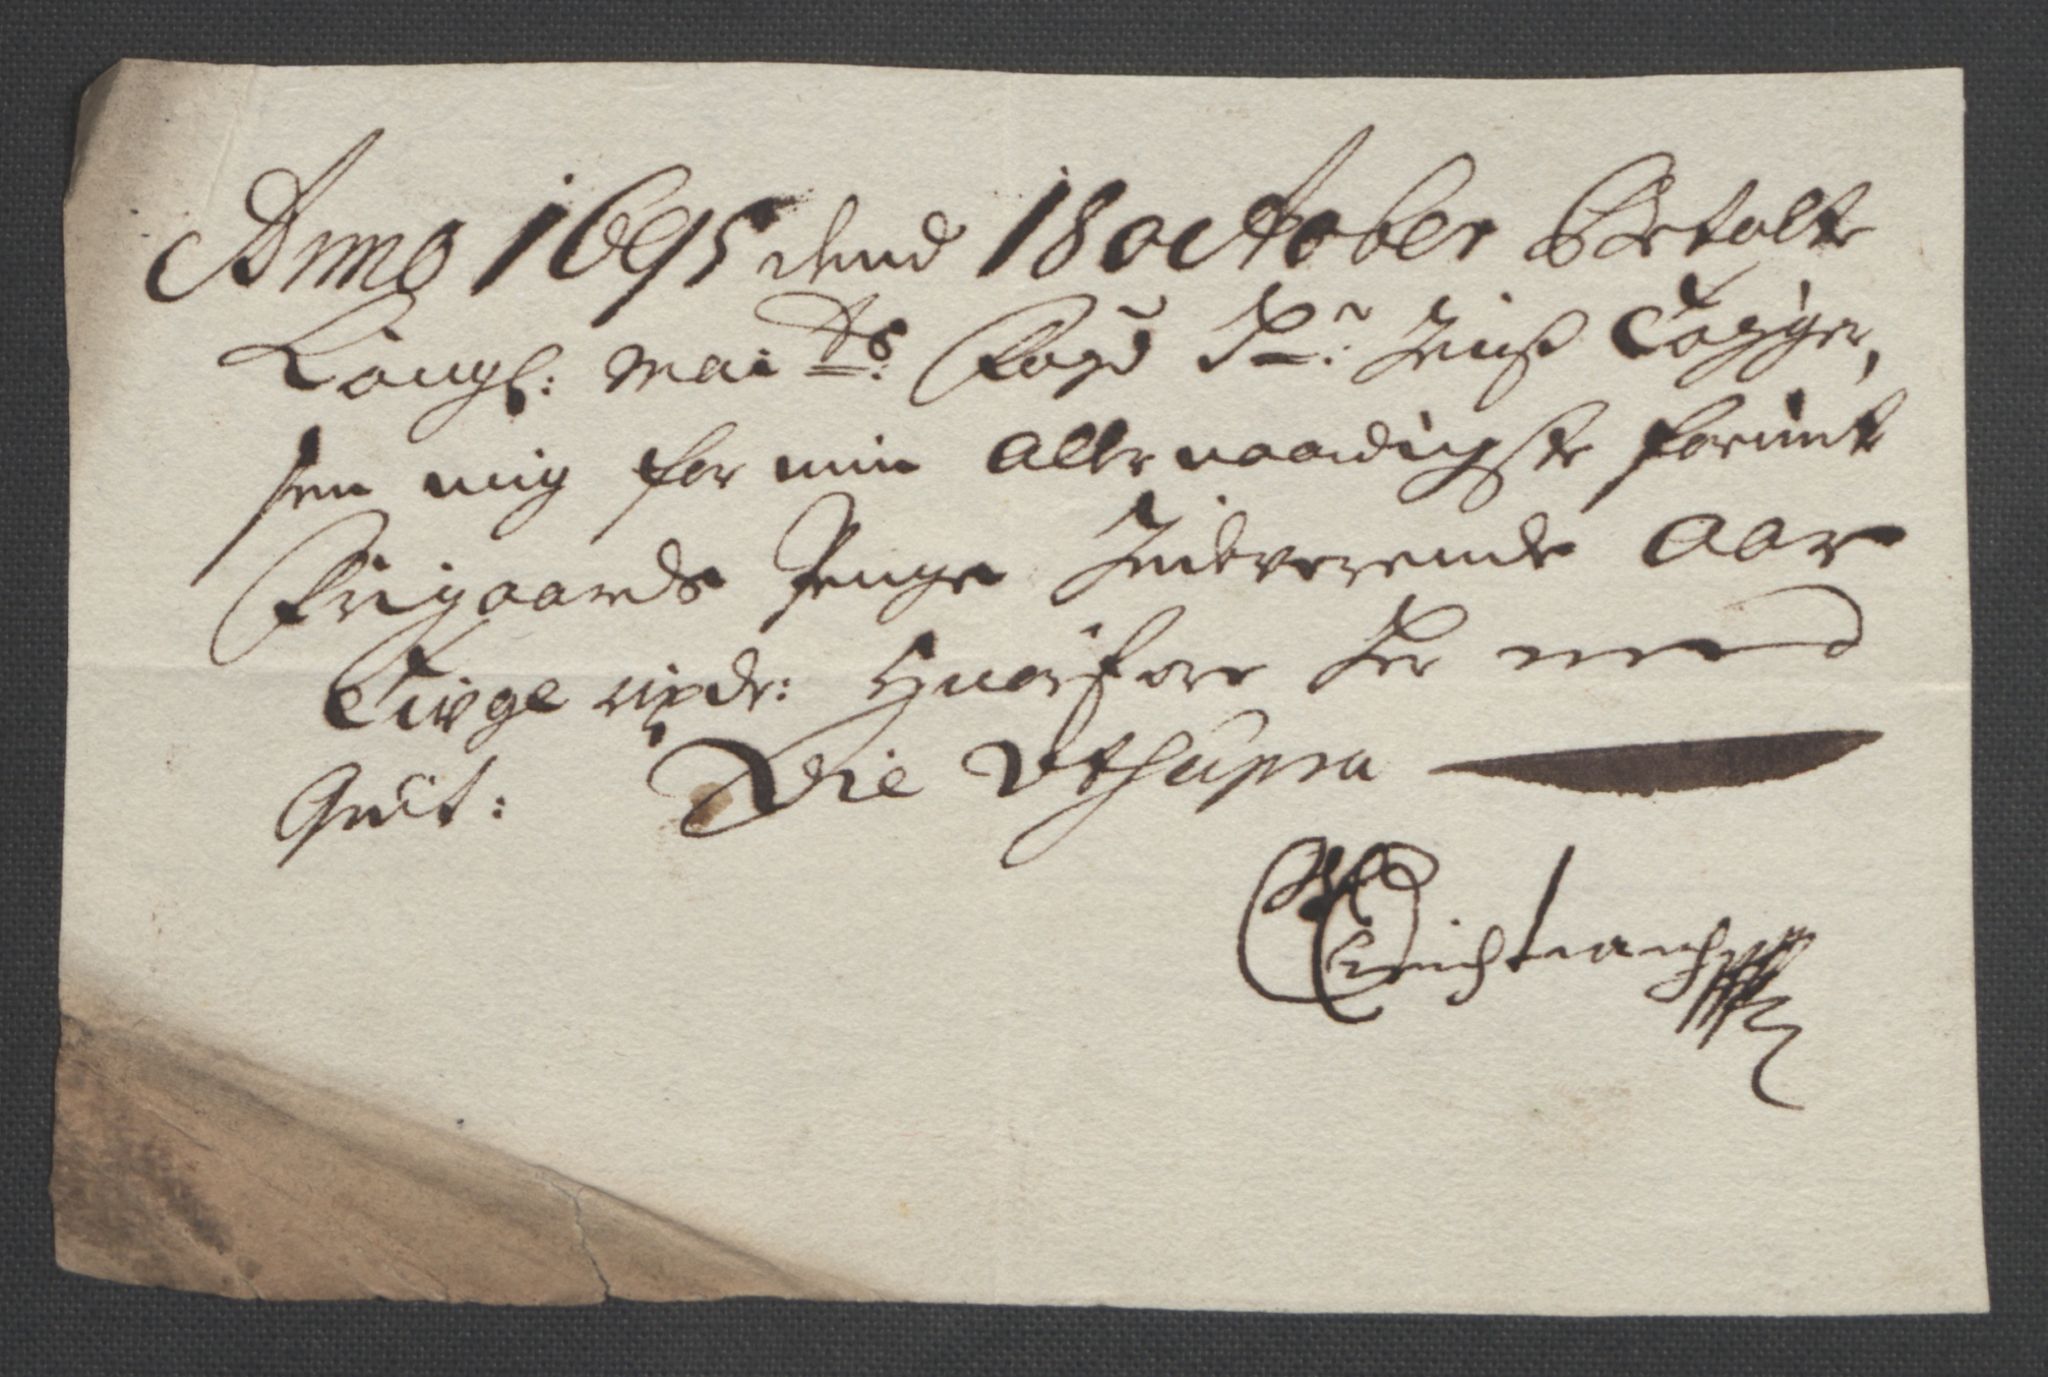 Anno 1695 dend 18 october Betalte
Kongl: Mai ts: Fogd Sr: Jens Tøgger,
sen mig for min Allernaadigste forunte
Frigaards Penge Indeverende Aar
Tivge rixdr: Huorfore Her med
Quit: Die Vtsupra